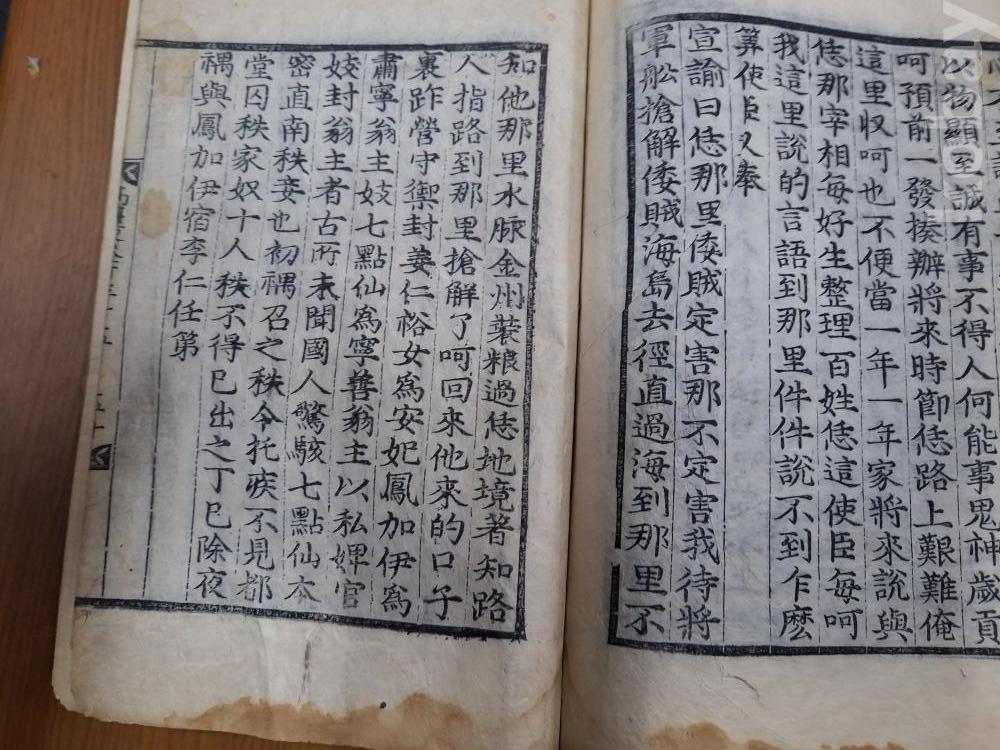 以物顯至誠有事不得人何能事鬼神歲貢
呵預前一發揍辦將來時節恁路上艱難俺
這里収呵也不便當一年一年家將來說與
恁那宰相每好生整理百姓恁這使臣每呵
我這里說的言語到那里件件說不到乍麽
筭使臣又奉
宣諭曰恁那里倭賊定害那不定害我待將
軍船搶解倭賊海島去徑直過海到那里不
知他那里水脉金州裝粮過恁地境著知路
人指路到那里搶解了呵回來他來的口子
裏 營守禦封姜仁裕女爲安妃鳳加伊爲
肅寧翁主妓七點仙爲寧善翁主以私婢官
妓封翁主者古所未聞國人驚駭七點仙本
密直南秩妻也初禑召之秩令托疾不見都
堂囚秩家奴十人秩不得已出之丁巳除夜
禑與鳳加伊宿李仁任第